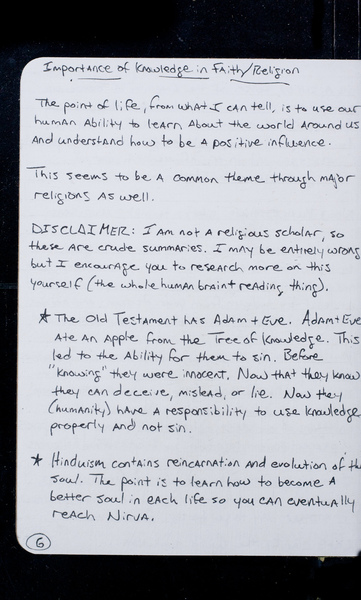 Importance of Knowledge in Faith/Religion
The point of life, from what I can tell, is to use our
human ability to learn about the world around us
and understand how to be a positive influence.
This seems to be a common theme through major
religions as well.
DISCLAIMER: I am not a religious scholar, so
these are crude summaries. I may be entirely wrong
but I encourage you to research more on this
yourself (the whole human brain + reading thing).
★ The Old Testament has Adam + Eve. Adam + Eve
ate an apple from the Tree of Knowledge. This
led to the ability for them to sin. Before
"knowing" they were innocent. Now that they know
they can deceive, mislead, or lie. Now they
(humanity) have a responsibility to use knowledge
properly and not sin.
★ Hinduism contains reincarnation and evolution of the
soul. The point is to learn how to become a
better soul in each life so you can eventually
reach Nirva.
6